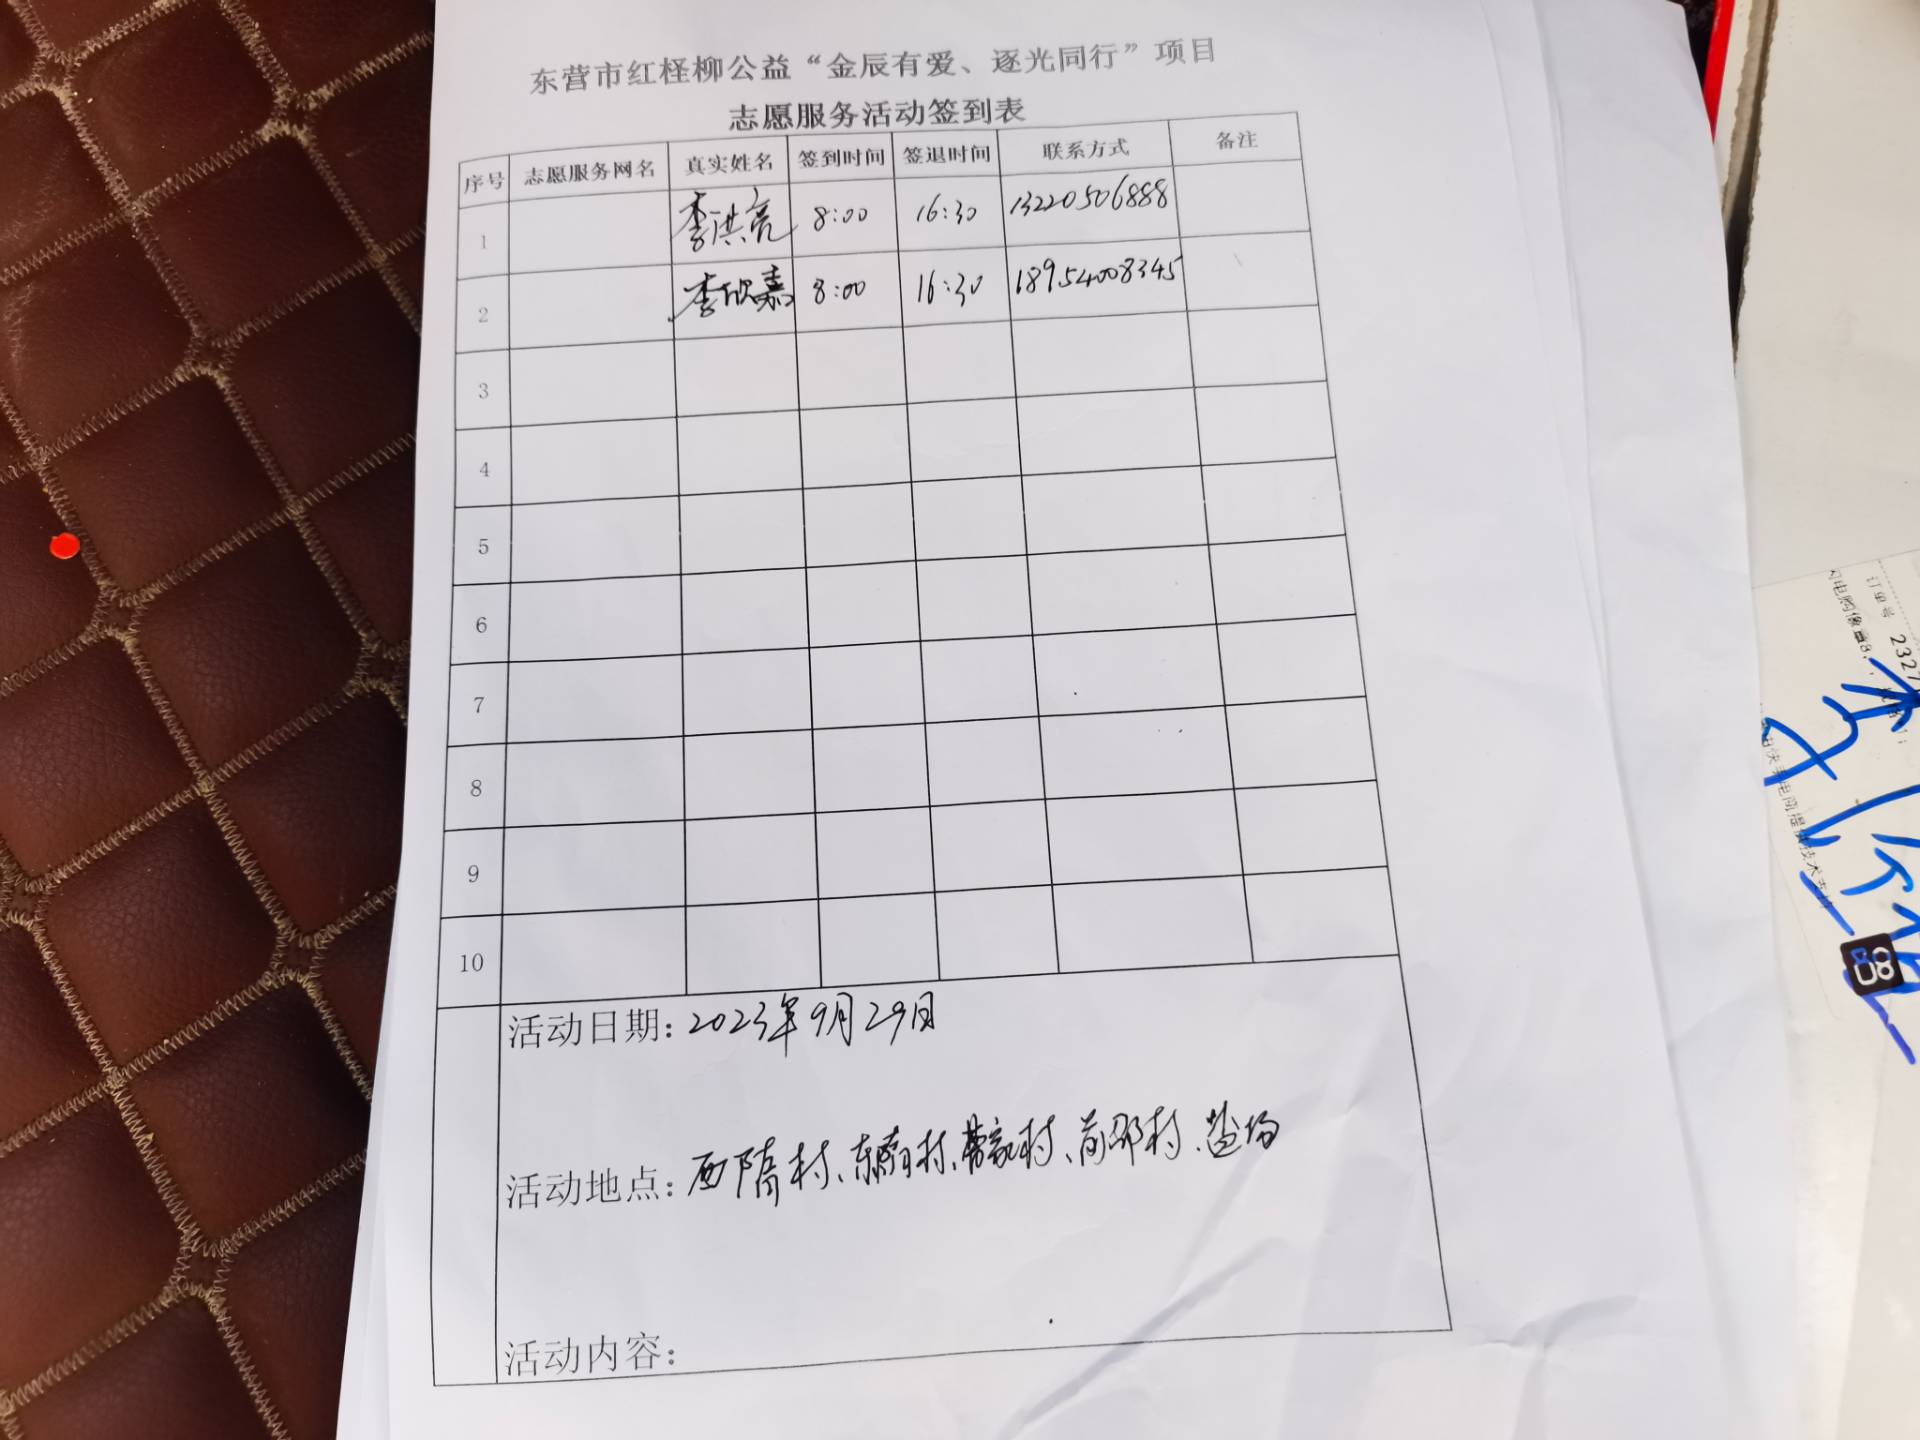 东营市红柽柳公益“金辰有爱、逐光同行”项目
志愿服务活动签到表
序号 志愿服务网名 真实姓名 签到时间 签退时间 联系方式 备注
1 李洪亮 8:00 16:30 13220506888
2 李欣嘉 8:00 16:30 18954008345
3
4
5
6
7
8
9
10
活动日期：2023年9月29日
活动地点：西隋村、东隋村、曹家村、前邵村、盐场
活动内容：
订单号 2327